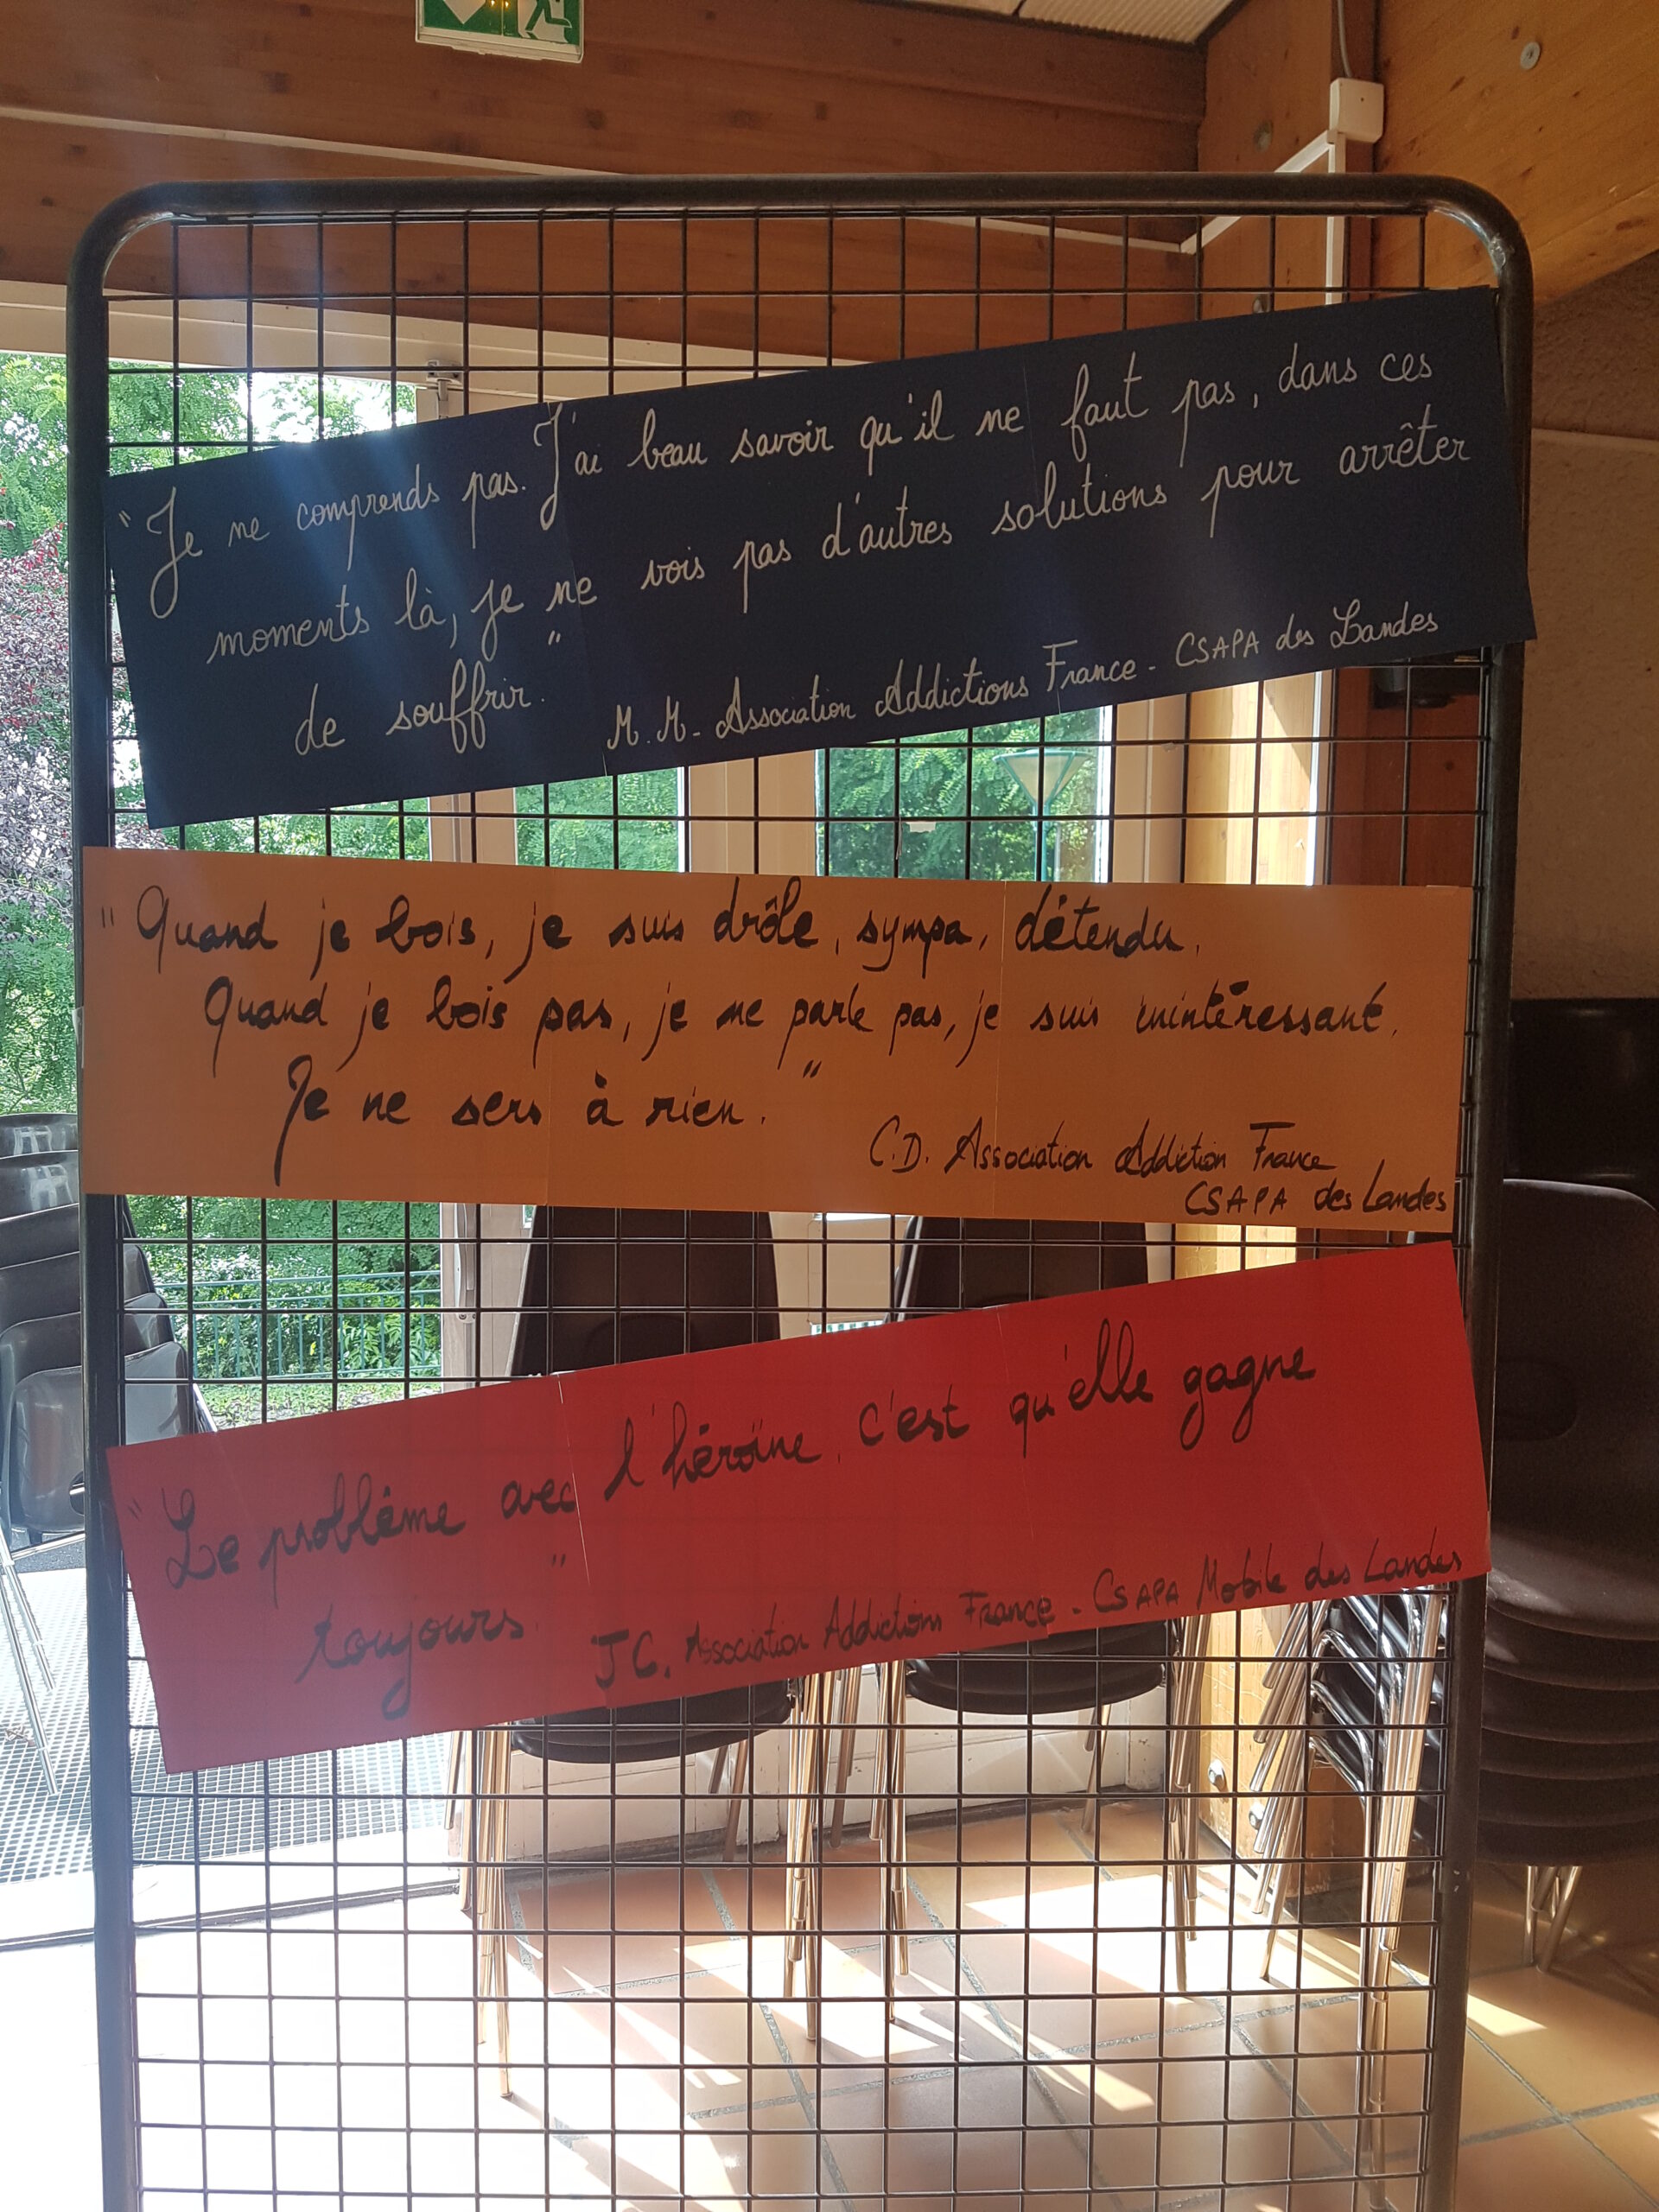 "Je ne comprends pas. J'ai beau savoir qu'il ne faut pas, dans ces
moments là, je ne vois pas d'autres solutions pour arrêter
de souffrir."
M.M. Association Addictions France - CSAPA des Landes
"Quand je bois, je suis drôle, sympa, détendu.
Quand je bois pas, je ne parle pas, je suis inintéressant.
Je ne sers à rien."
C.D. Association Addiction France
CSAPA des Landes
"Le problème avec l'héroïne, c'est qu'elle gagne
toujours."
JC. Association Addictions France - CSAPA Mobile des Landes